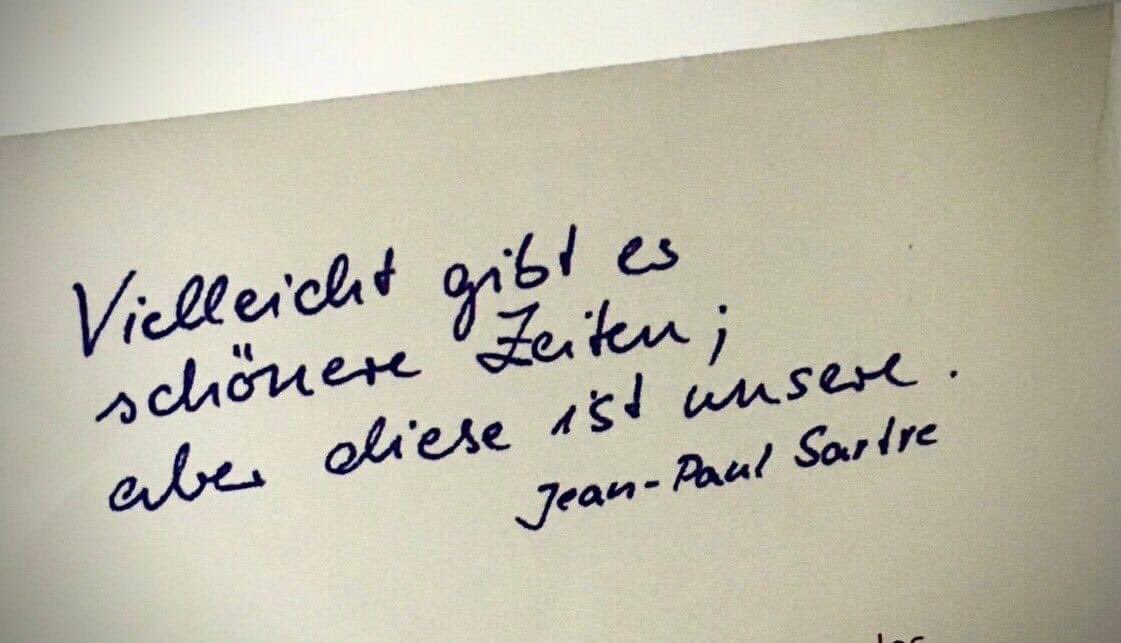 Vielleicht gibt es
schönere Zeiten;
aber diese ist unsere.
Jean-Paul Sartre